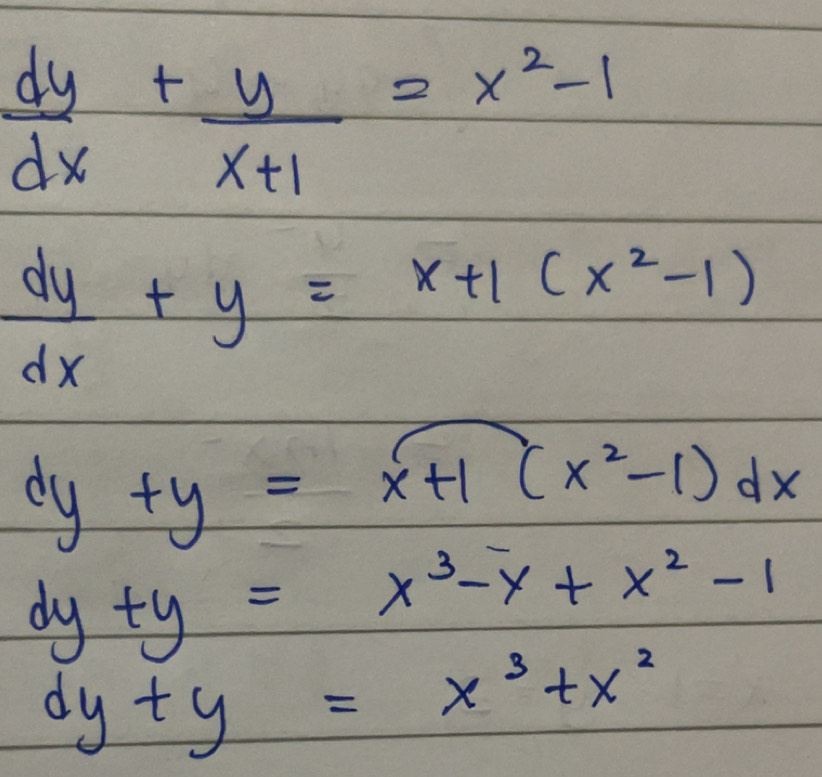 dy/dx + y/x+1 = x²-1
dy/dx + y = x+1 (x²-1)
dy + y = x+1 (x²-1) dx
dy + y = x³-x + x² - 1
dy + y = x³+x²